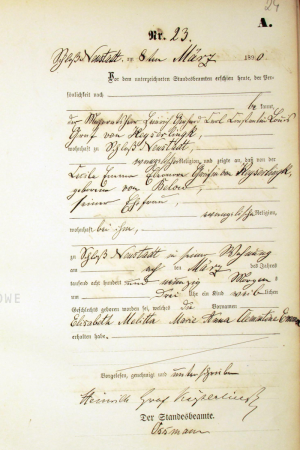 24
A.
Nr. 23.
Schloß Neustadt, am 8ten März 1890.
Vor dem unterzeichneten Standesbeamten erschien heute, der Per-
sönlichkeit nach
be kannt,
der
Graf von Keyserlingk,
wohnhaft zu Schloß Neustadt,
evangelischer Religion, und zeigte an, daß von der
Gräfin von Keyserlingk,
geborenen von Below,
seiner Ehefrau,
evangelischer Religion,
wohnhaft bei ihm,
zu Schloß Neustadt in seiner Wohnung
am März des Jahres
tausend acht hundert und neunzig Morgens
um drei Uhr ein Kind weib lichen
Geschlechts geboren worden sei, welches die Vornamen
Elisabeth Melitta Marie Clementine
erhalten habe.
Vorgelesen, genehmigt und unterschrieben
Heinrich Graf Keyserlingk
Der Standesbeamte.
OWE